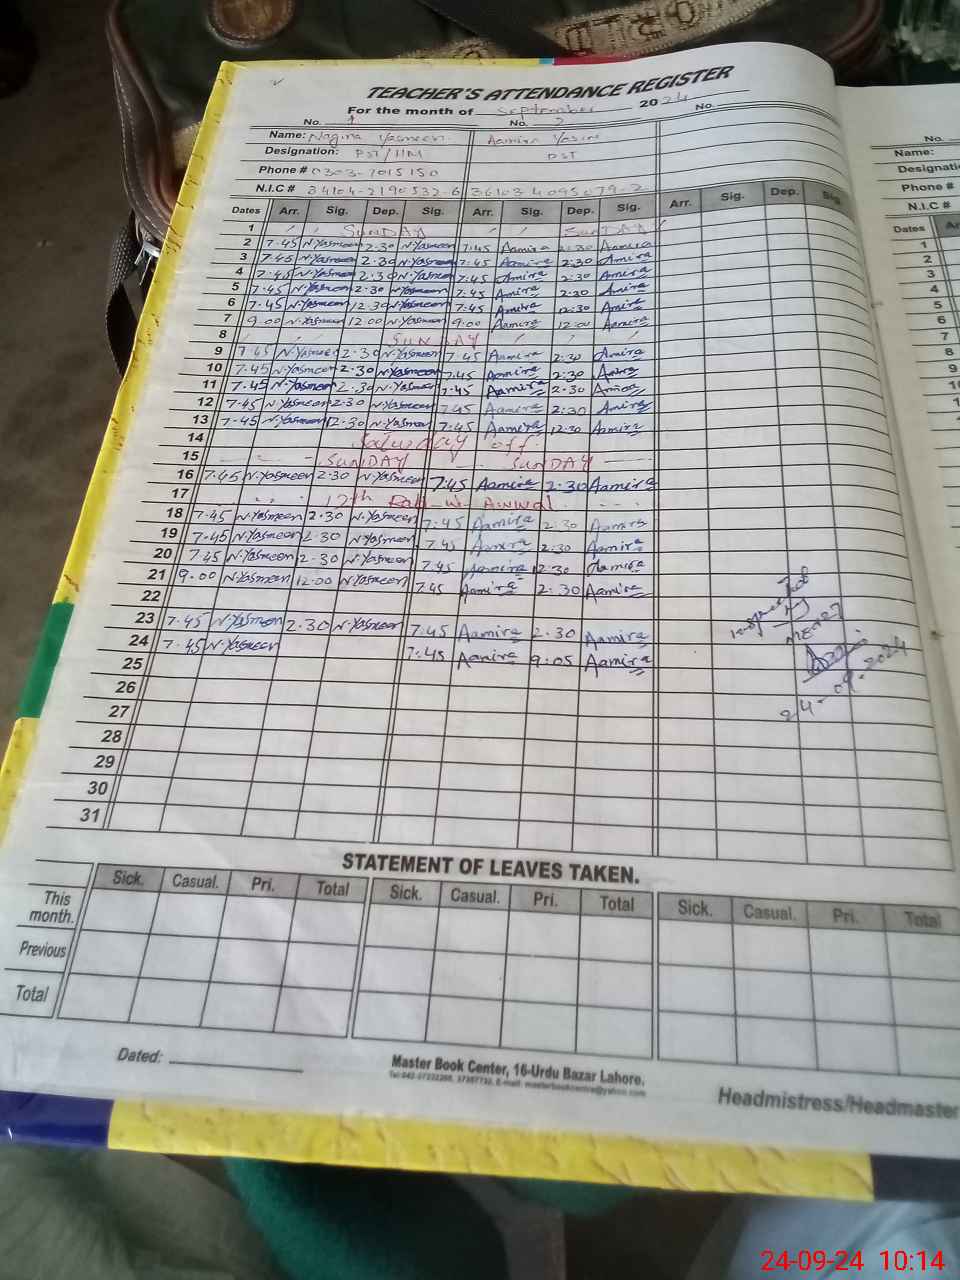 TEACHER'S ATTENDANCE REGISTER
For the month of September 2024 No.
No. 1 No. 2
Name: Nagina Yasmeen Aamira Yasin
Designation: PST/HM PST
Phone # 0303-7015150
N.I.C # 34104-2190532-6 36103 4095079-2
Dates Arr. Sig. Dep. Sig. Arr. Sig. Dep. Sig. Arr. Sig. Dep. Sig.
1 SUNDAY SUNDAY
2 7.45 N.Yasmeen 2.30 N.Yasmeen 7.45 Aamira 2.30 Aamira
3 7.45 N.Yasmeen 2.30 N.Yasmeen 7.45 Aamira 2:30 Aamira
4 7.45 N.Yasmeen 2.30 N.Yasmeen 7.45 Aamira 2.30 Aamira
5 7.45 N.Yasmeen 2.30 N.Yasmeen 7.45 Aamira 2.30 Aamira
6 7.45 N.Yasmeen 12.30 N.Yasmeen 7:45 Aamira 12:30 Aamira
7 9.00 N.Yasmeen 12.00 N.Yasmeen 9:00 Aamira 12:00 Aamira
8 SUNDAY
9 7.45 N.Yasmeen 2.30 N.Yasmeen 7.45 Aamira 2:30 Aamira
10 7.45 N.Yasmeen 2.30 N.Yasmeen 7.45 Aamira 2:30 Aamira
11 7.45 N.Yasmeen 2.30 N.Yasmeen 7.45 Aamira 2.30 Aamira
12 7.45 N.Yasmeen 2.30 N.Yasmeen 7.45 Aamira 2:30 Aamira
13 7.45 N.Yasmeen 12.30 N.Yasmeen 7.45 Aamira 12.30 Aamira
14 Saturday off
15 SUNDAY SUNDAY
16 7.45 N.Yasmeen 2.30 N.Yasmeen 7.45 Aamira 2.30 Aamira
17 12th Rabi-ul-Awwal
18 7.45 N.Yasmeen 2.30 N.Yasmeen 7.45 Aamira 2:30 Aamira
19 7.45 N.Yasmeen 2.30 N.Yasmeen 7.45 Aamira 2:30 Aamira
20 7.45 N.Yasmeen 2.30 N.Yasmeen 7.45 Aamira 12:30 Aamira
21 9.00 N.Yasmeen 12.00 N.Yasmeen 7.45 Aamira 2:30 Aamira
22
23 7.45 N.Yasmeen 2.30 N.Yasmeen 7.45 Aamira 2.30 Aamira
24 7.45 N.Yasmeen 7.45 Aamira 9:05 Aamira
25
26
27
28
29
30
31
24-09-2024
STATEMENT OF LEAVES TAKEN.
Sick. Casual. Pri. Total Sick. Casual. Pri. Total Sick. Casual. Pri. Total
This month.
Previous
Total
Dated:
Master Book Center, 16-Urdu Bazar Lahore.
Headmistress/Headmaster
No.
Name:
Designation
Phone #
N.I.C #
Dates
1
2
3
4
5
6
7
8
9
24-09-24 10:14